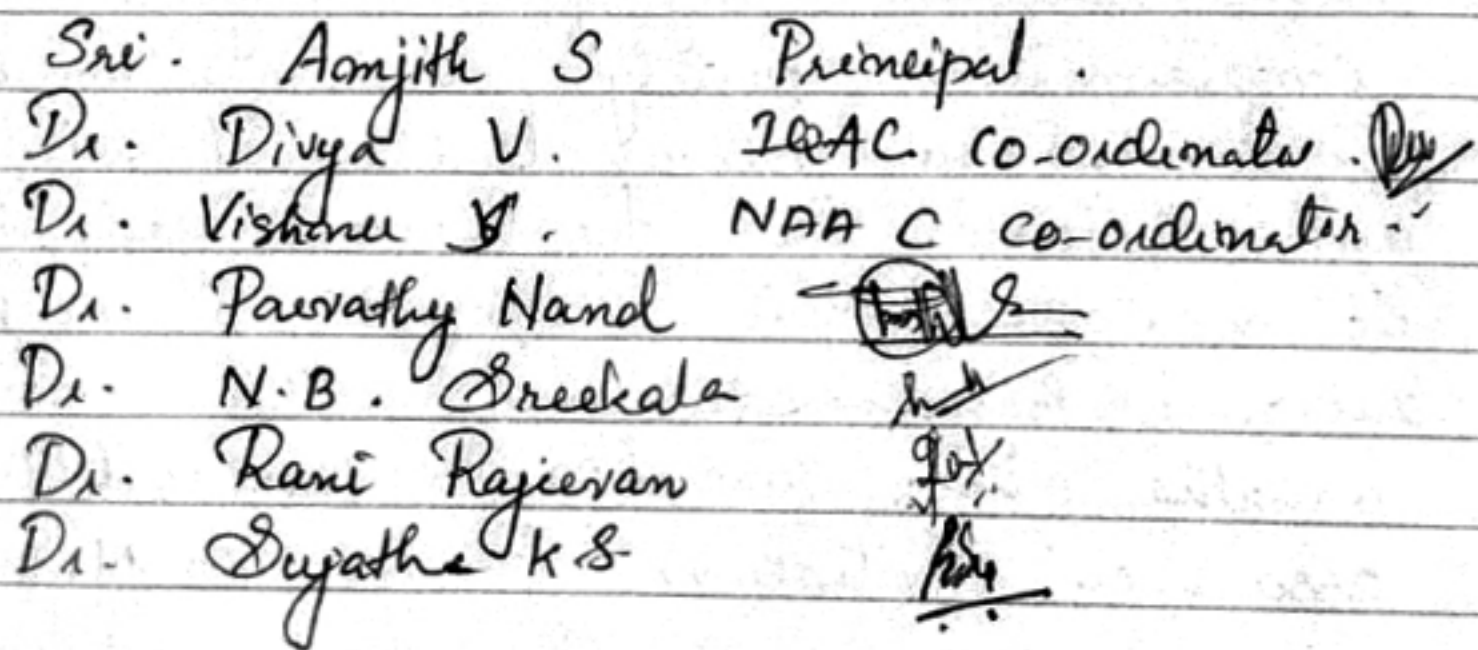 Sri. Amjith S Principal.
Dr. Divya V. IQAC Co-ordinator.
Dr. Vishnu V. NAAC Co-ordinator.
Dr. Parvathy Nand
Dr. N.B. Sreekala
Dr. Rani Rajeevan
Dr. Sujatha K S